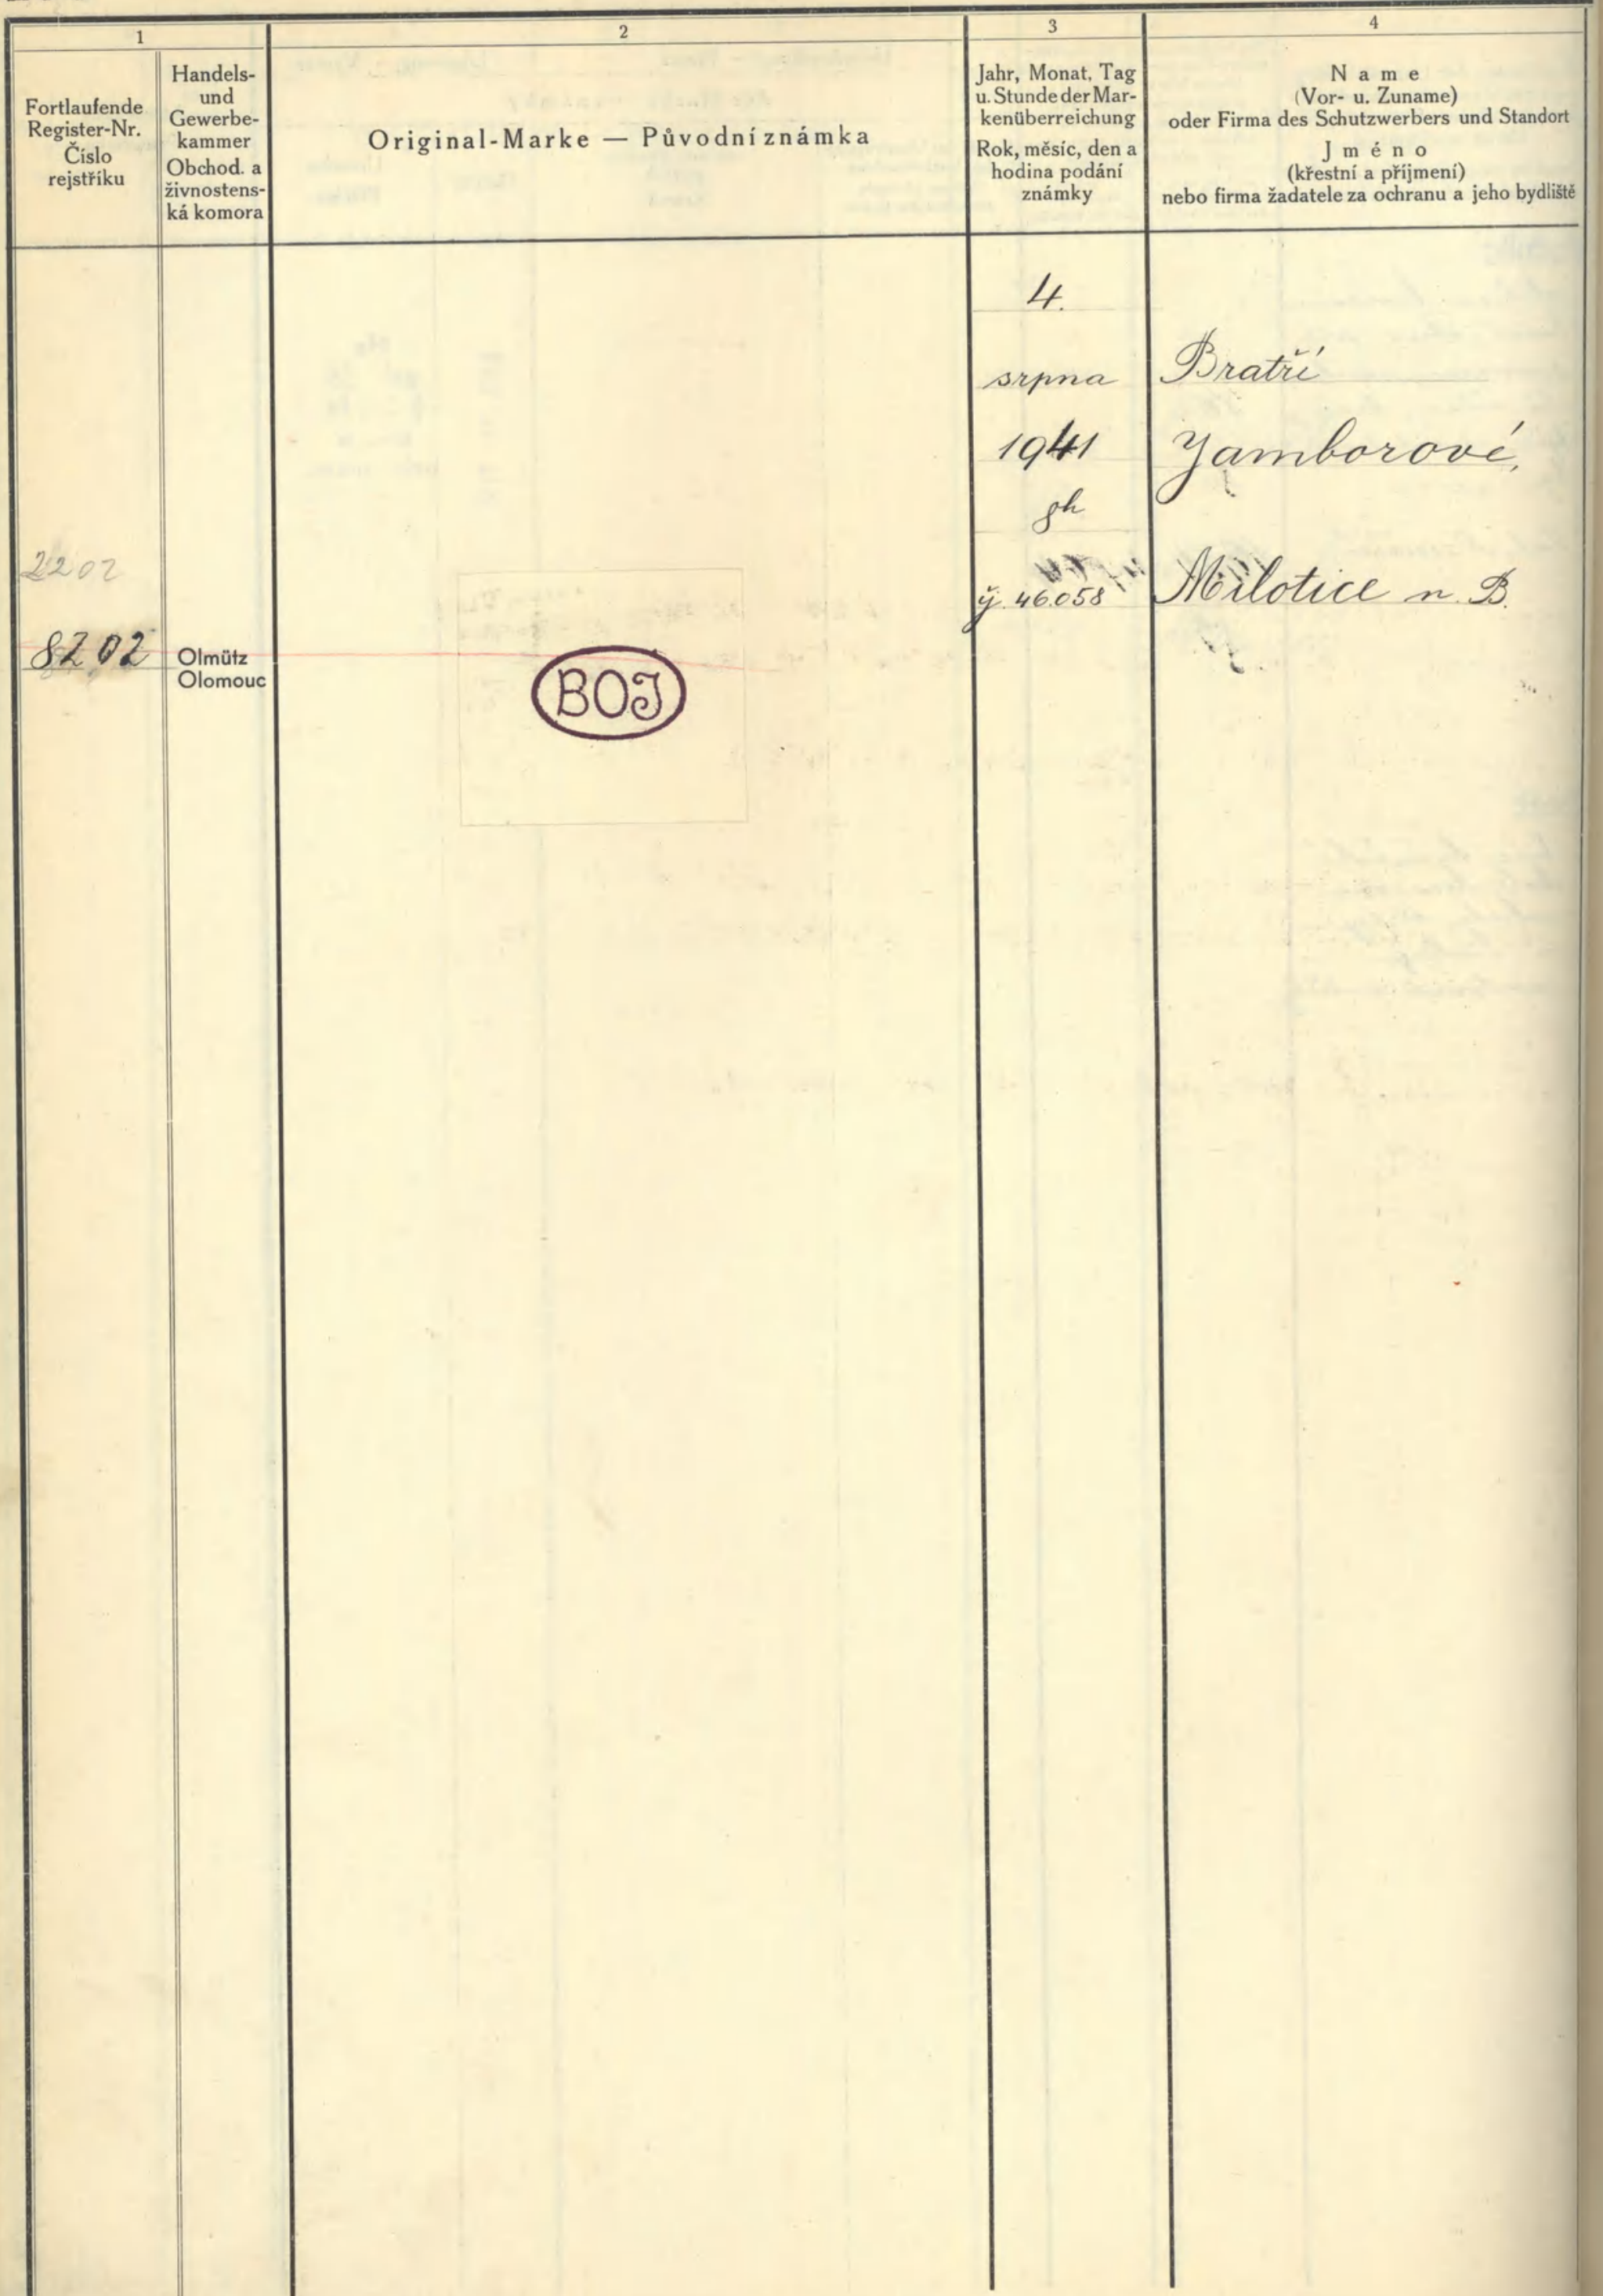 1
2
3
4
Fortlaufende
Register-Nr.
Číslo
rejstříku
Handels-
und
Gewerbe-
kammer
Obchod. a
živnostens-
ká komora
Original-Marke — Původní známka
Jahr, Monat, Tag
u. Stunde der Mar-
kenüberreichung
Rok, měsíc, den a
hodina podání
známky
Name
(Vor- u. Zuname)
oder Firma des Schutzwerbers und Standort
Jméno
(křestní a příjmení)
nebo firma žadatele za ochranu a jeho bydliště
2202
8202
Olmütz
Olomouc
BOJ
4.
srpna
1941
8h
46.058
Bratří
Jamborové,
Milotice n. B.